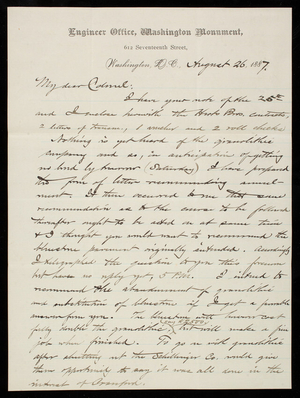 Engineer Office, Washington Monument,
612 Seventeenth Street,
Washington, D.C. August 26. 1887.
My dear Colonel:
I have your note of the 25th
and I enclose herewith the Bros. contracts,
2 letters of , 1 voucher and 2 roll checks
Nothing is yet heard of the granolithic
company and so, in anticipation of getting
no bid by tomorrow (Saturday) I have prepared
the form of letter recommending annul-
ment. It then occurred to me that some
recommendation as to the course to be followed
thereafter ought to be added at same time
& I thought you would want to recommend the
bluestone pavement originally intended. Accordingly
I telegraphed the question to you this forenoon
but have no reply yet, 5 P.M. I intend to
recommend the abandonment of granolithic
and substitution of bluestone if I get a favorable
answer from you. The bluestone will however cost
fully double the granolithic but will make a fine
job when finished. To go on with granolithic
after shutting out the Schillinger Co. would give
them opportunity to say it was all done in the
interest of Cranford.